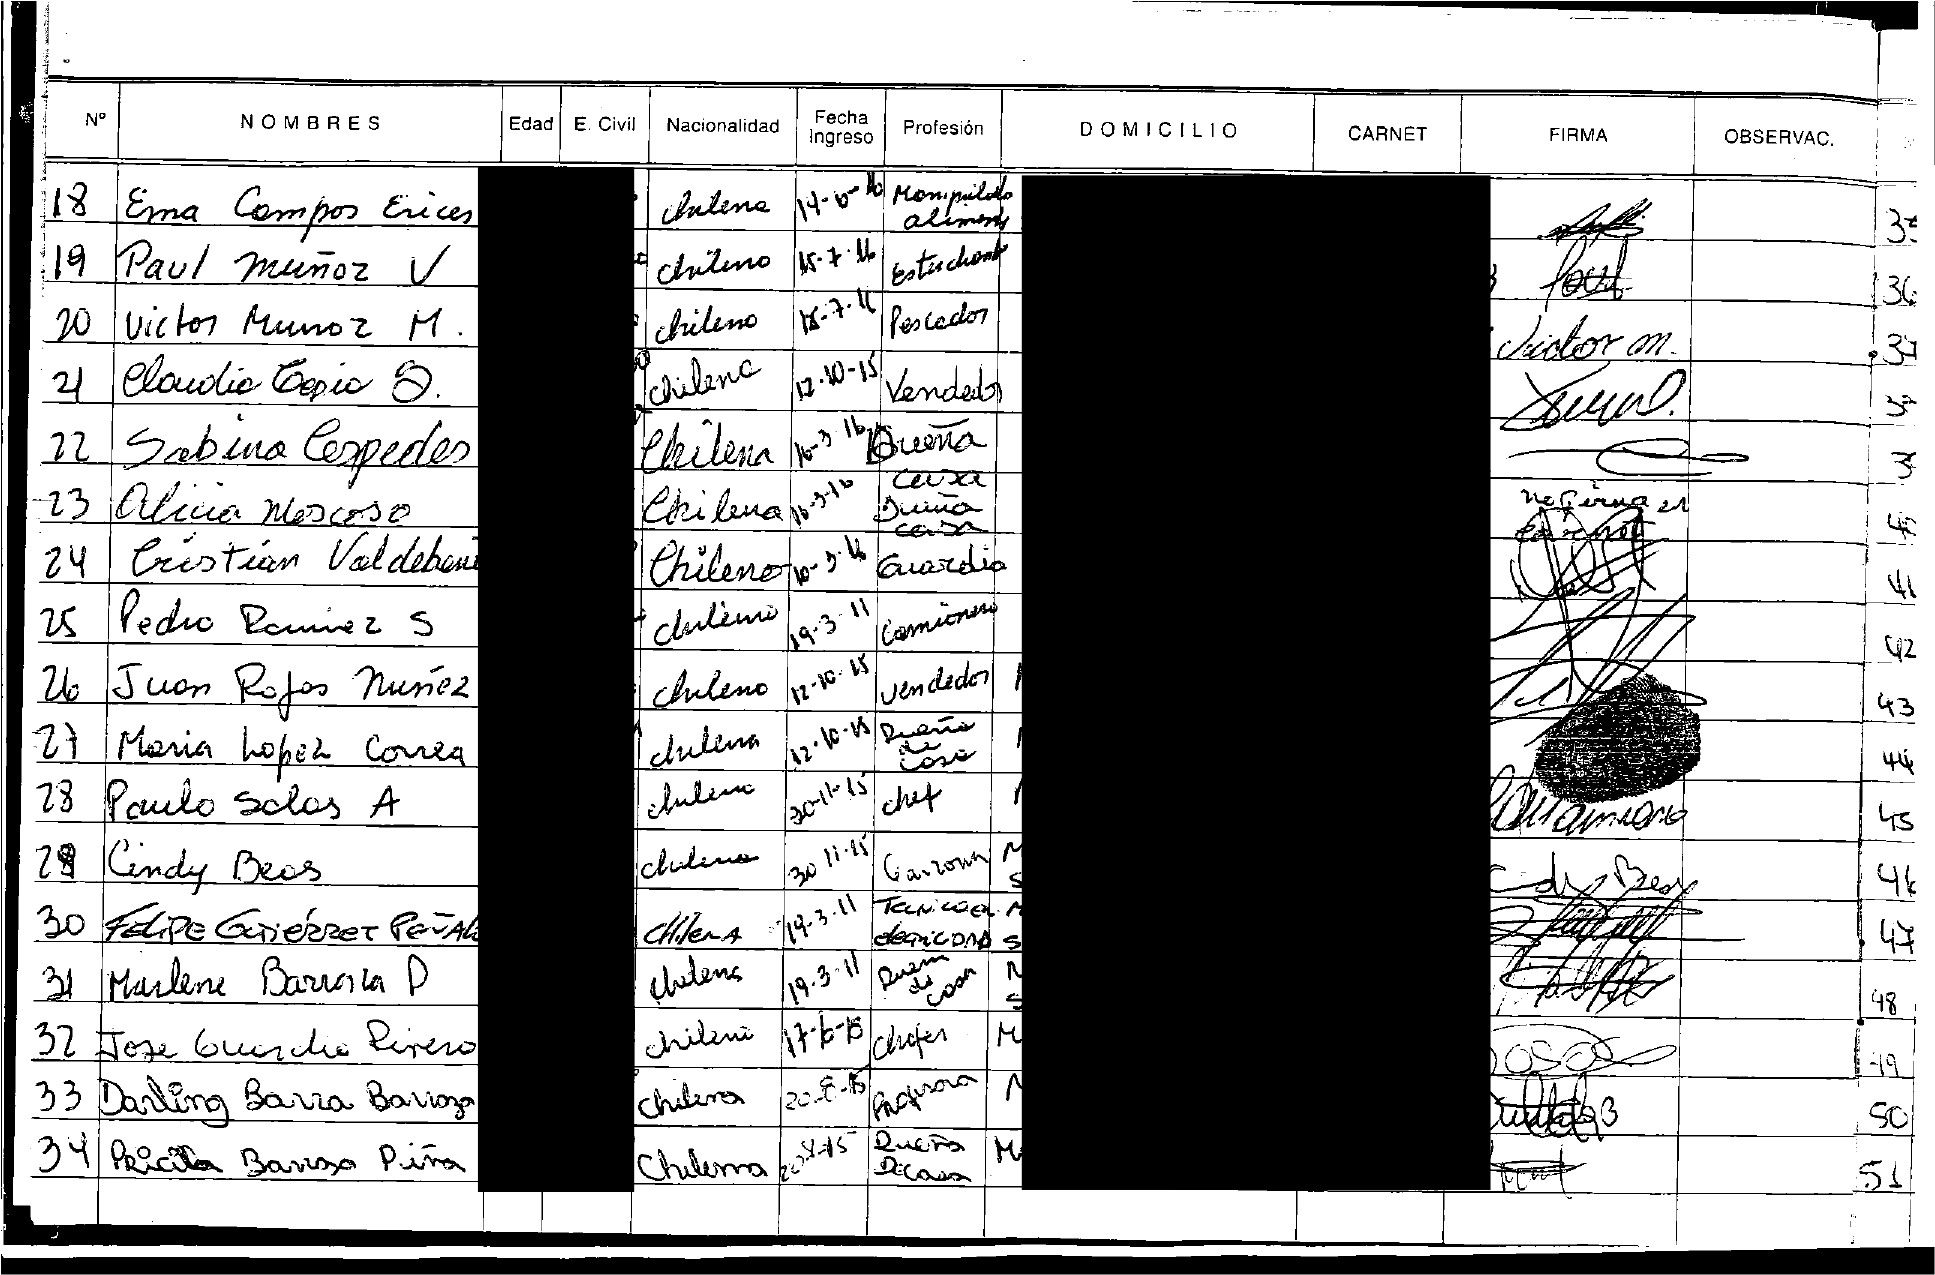 Nº NOMBRES Edad E. Civil Nacionalidad Fecha Ingreso Profesión DOMICILIO CARNET FIRMA OBSERVAC.
18 Ema Campos Erices chilena 14-6-16 Manipulado aliment
19 Paul Muñoz V chileno 15-7-16 Estudiant Paul 36
20 Victor Munoz M. chileno 15-7-16 Pescador Victor m. 37
21 Claudia Tapia S. chilena 12-10-15 Vendedor
22 Sabina Cespedes Chilena 16-3-16 Dueña casa
23 Alicia Moscoso Chilena 16-3-16 Dueña casa no firma
24 Cristian Valdebeni Chileno 10-3-16 Guardia 41
25 Pedro Ramirez S chileno 19-3-11 Camionero 42
26 Juan Rojas Nuñez chileno 12-10-15 vendedor 43
27 Maria Lopez Correa chilena 12-10-15 Dueña de Casa 44
28 Paulo Salas A chileno 30-11-15 chef 45
29 Cindy Beas chilena 30-11-15 Garzona Beas 46
30 FELIPE GUTIÉRREZ PEÑAL CHILENA 19-3-11 TECNICO EN 47
31 Marlene Barroza P chilena 19-3-11 Dueña de casa 48
32 Jose Guardia Rivero chileno 17-6-15 Chofer M 49
33 Darling Barra Barroza chilena 20-8-15 Profesora 50
34 Pricila Barroza Piña Chilena 20-8-15 Dueña De casa M 51